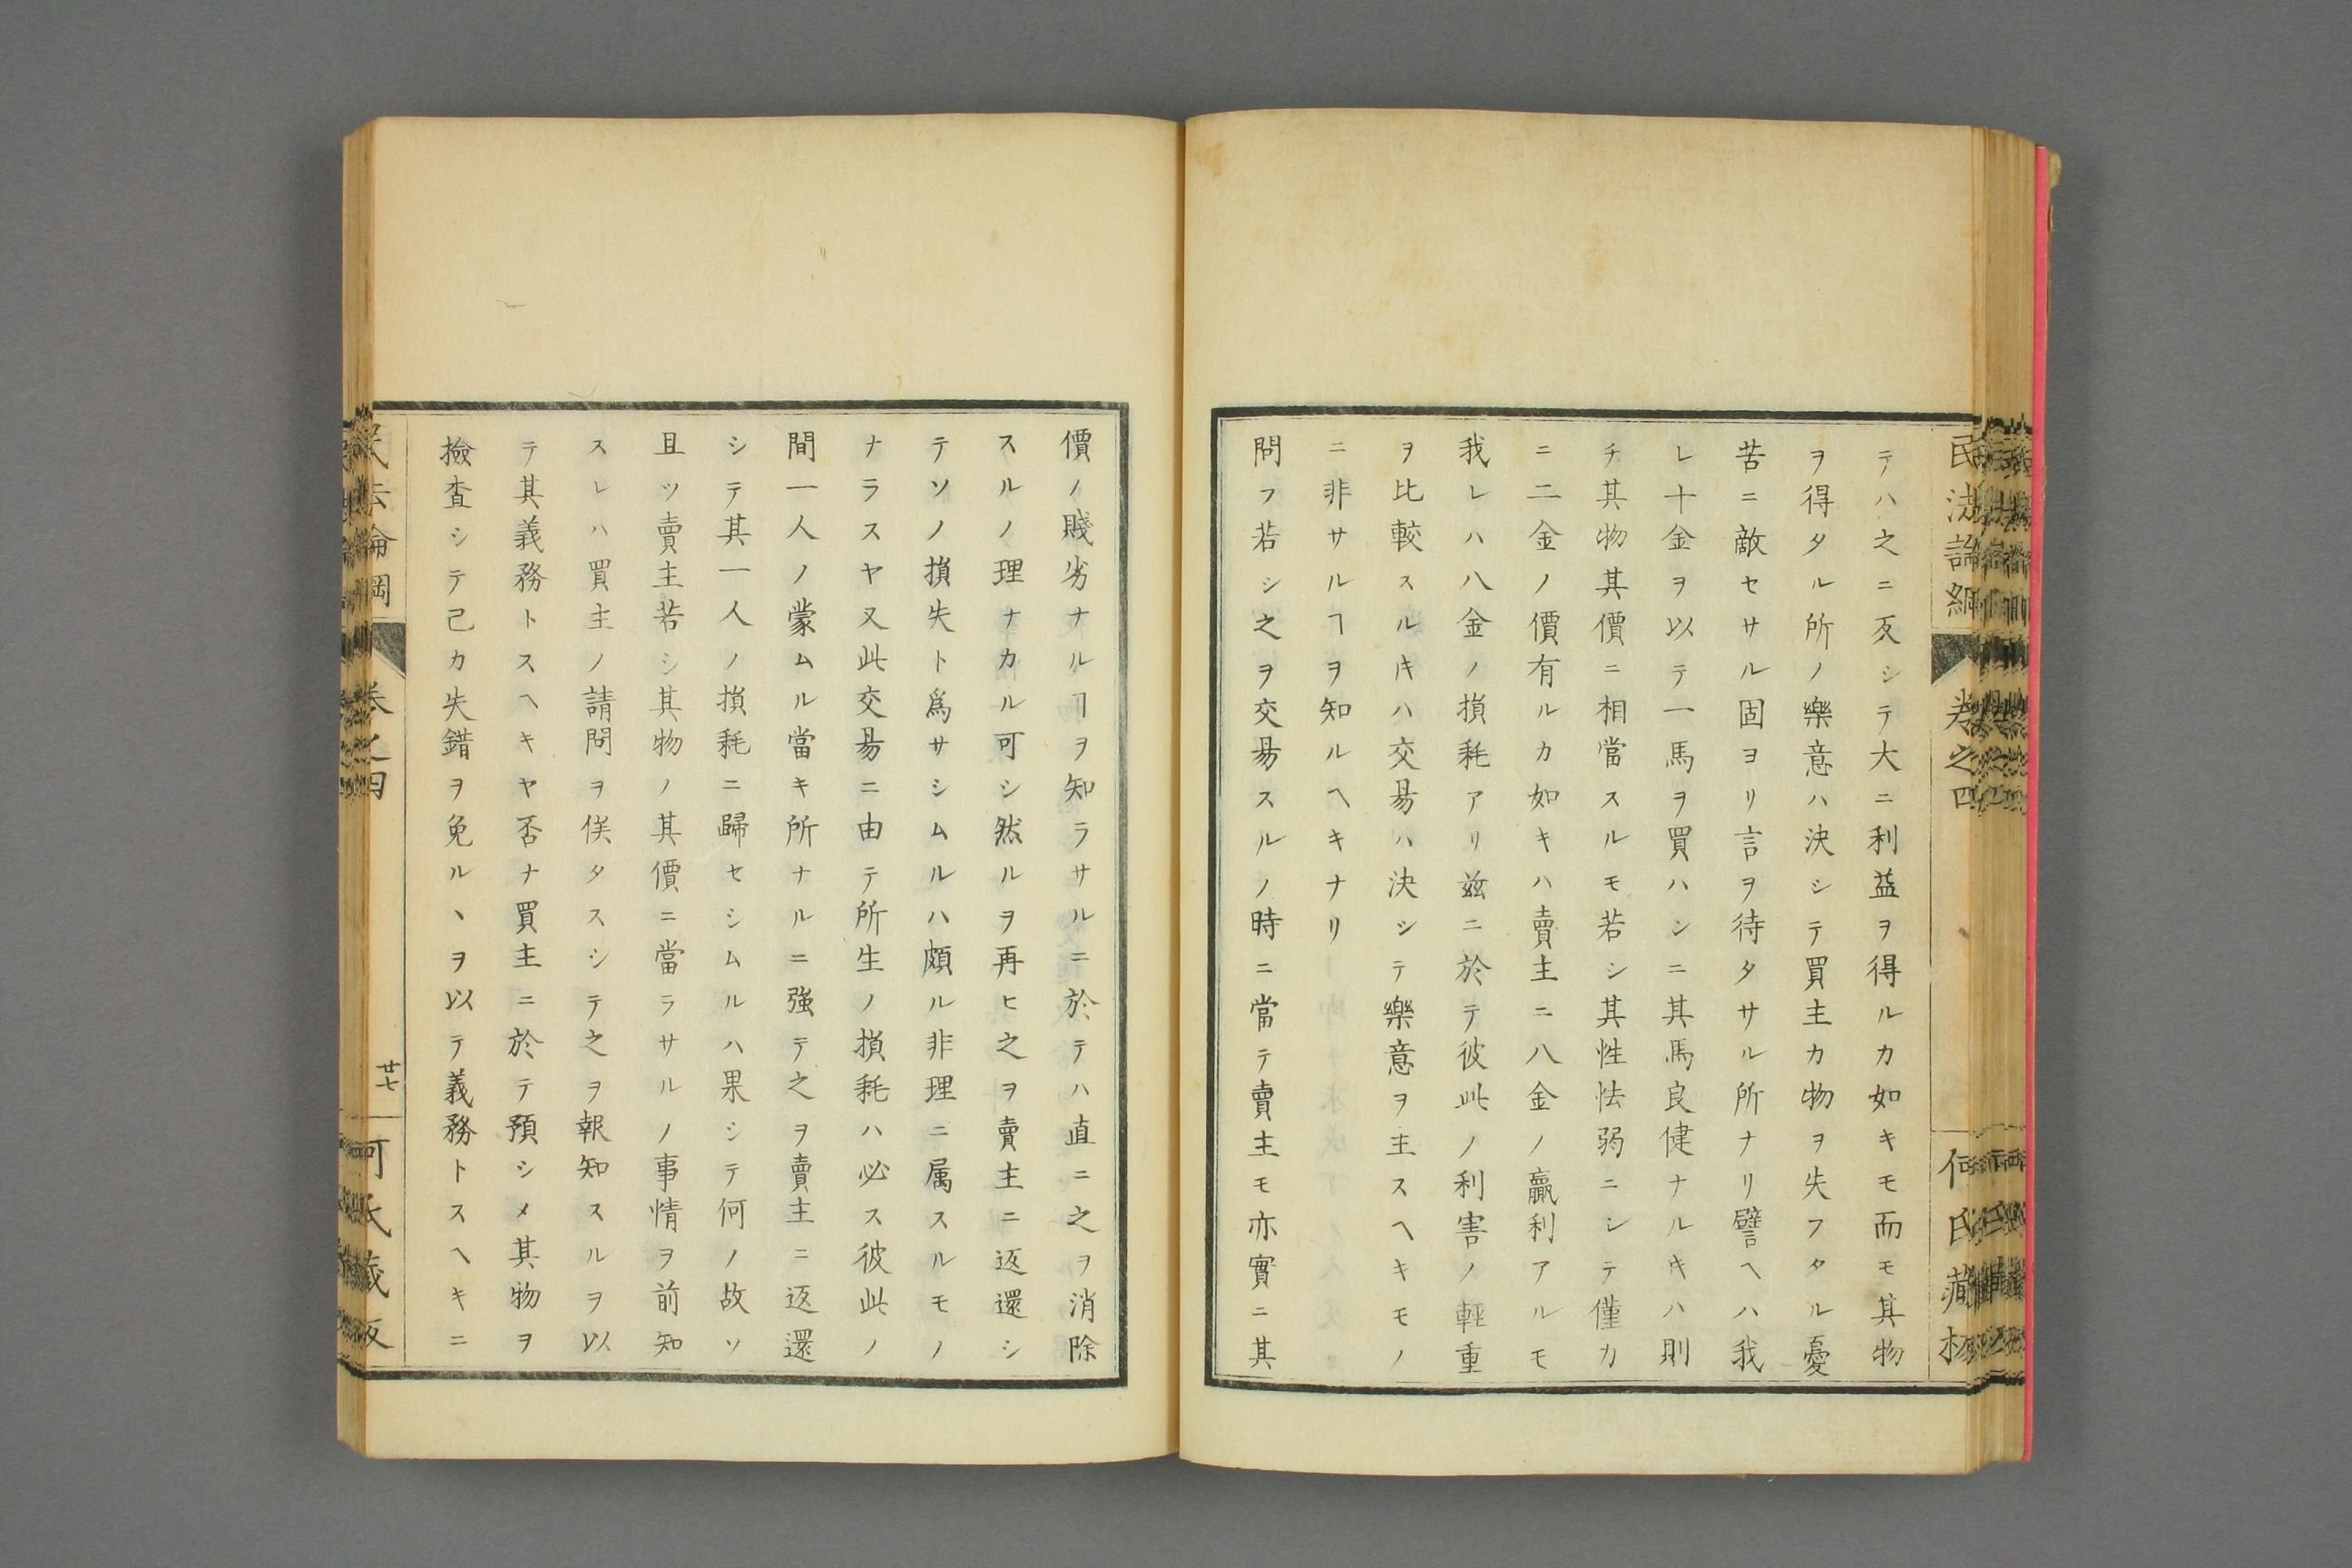 民法論綱
卷之四
何氏藏板
テハ之ニ反シテ大ニ利益ヲ得ルカ如キモ而モ其物
ヲ得タル所ノ樂意ハ決シテ買主カ物ヲ失フタル憂
苦ニ敵セサル固ヨリ言ヲ待タサル所ナリ譬ヘハ我
レ十金ヲ以テ一馬ヲ買ハンニ其馬良健ナルキハ則
チ其物其價ニ相當スルモ若シ其性怯弱ニシテ僅カ
ニ二金ノ價有ルカ如キハ賣主ニ八金ノ贏利アルモ
我レハ八金ノ損耗アリ兹ニ於テ彼此ノ利害ノ輕重
ヲ比較スルキハ交易ハ決シテ樂意ヲ主スヘキモノ
ニ非サルヿヲ知ルヘキナリ
問フ若シ之ヲ交易スルノ時ニ當テ賣主モ亦實ニ其
價ノ賤劣ナルヿヲ知ラサルニ於テハ直ニ之ヲ消除
スルノ理ナカル可シ然ルヲ再ヒ之ヲ賣主ニ返還シ
テソノ損失ト爲サシムルハ頗ル非理ニ属スルモノ
ナラスヤ又此交易ニ由テ所生ノ損耗ハ必ス彼此ノ
間一人ノ蒙ムル當キ所ナルニ強テ之ヲ賣主ニ返還
シテ其一人ノ損耗ニ歸セシムルハ果シテ何ノ故ソ
且ツ賣主若シ其物ノ其價ニ當ラサルノ事情ヲ前知
スレハ買主ノ請問ヲ俟タスシテ之ヲ報知スルヲ以
テ其義務トスヘキヤ否ナ買主ニ於テ預シメ其物ヲ
撿査シテ己カ失錯ヲ免ルヽヲ以テ義務トスヘキニ
民法論綱
卷之四
廿七
何氏藏板